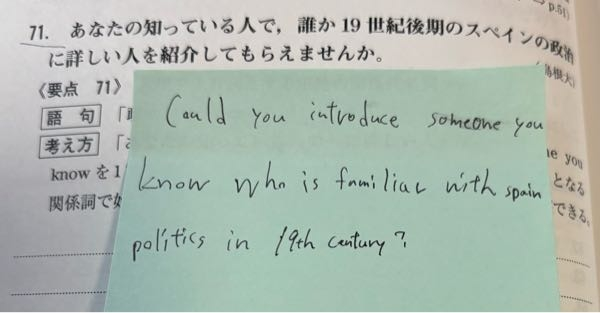 p.51)
71. あなたの知っている人で，誰か19世紀後期のスペインの政治
に詳しい人を紹介してもらえませんか。
根大)
〈要点 71〉
語句
考え方
Could you introduce someone you
know who is familiar with spain
politics in 19th century?
me you
know を1
となる
関係詞で
できる。